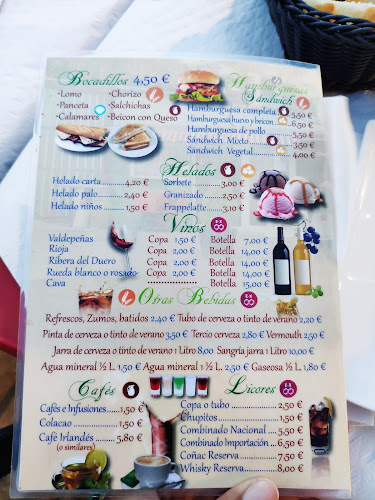 Bocadillos 4,50 €
•Lomo •Chorizo
•Panceta •Salchichas
•Calamares •Beicon con Queso
Hamburguesas
Sándwich
Hamburguesa completa 5,50 €
Hamburguesa huevo y beicon 6,50 €
Hamburguesa de pollo 5,50 €
Sándwich Mixto 3,50 €
Sándwich Vegetal 4,00 €
Helados
Helado carta 4,20 €
Helado palo 2,40 €
Helado niños 1,50 €
Sorbete 3,00 €
Granizado 2,50 €
Frappelatte 3,50 €
Vinos
Valdepeñas Copa 1,50 € Botella 7,00 €
Rioja Copa 2,00 € Botella 14,00 €
Ribera del Duero Copa 2,00 € Botella 14,00 €
Rueda blanco o rosado Copa 2,00 € Botella 14,00 €
Cava Botella 15,00 €
Otras Bebidas
Refrescos, Zumos, batidos 2,40 € Tubo de cerveza o tinto de verano 2,20 €
Pinta de cerveza o tinto de verano 3,50 € Tercio cerveza 2,80 € Vermouth 2,50 €
Jarra de cerveza o tinto de verano 1 Litro 8,00 Sangría jarra 1 Litro 10,00 €
Agua mineral ½ L. 1,50 € Agua mineral 1 ½ L. 2,50 € Gaseosa ½ L. 1,80 €
Cafés
Cafés e Infusiones 1,50 €
Colacao 1,50 €
Café Irlandés 5,80 €
(o similares)
Licores
Copa o tubo 2,50 €
Chupitos 1,50 €
Combinado Nacional 5,50 €
Combinado Importación 6,50 €
Coñac Reserva 7,50 €
Whisky Reserva 8,00 €